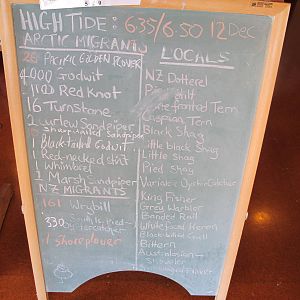 HIGH TIDE: 635/6.50 12 Dec
ARCTIC MIGRANTS
26 PACIFIC GOLDEN PLOVER
4,000 Godwit
1100 Red Knot
16 Turnstone
2 Curlew Sandpiper
Sharp-tailed Sandpiper
1 Black-tailed Godwit
1 Red-necked stint
1 Whimbrel
1 Marsh Sandpiper
NZ MIGRANTS
161 Wrybill
330 South Is. pied-
oystercatcher
1 shore plover
LOCALS
NZ Dotterel
Pied stilt
White fronted Tern
Caspian Tern
Black Shag
Little black Shag
Little Shag
Pied Shag
Variable Oystercatcher
King Fisher
Grey Warbler
Banded Rail
White faced Heron
Black-billed Gull
Bittern
Shoveler